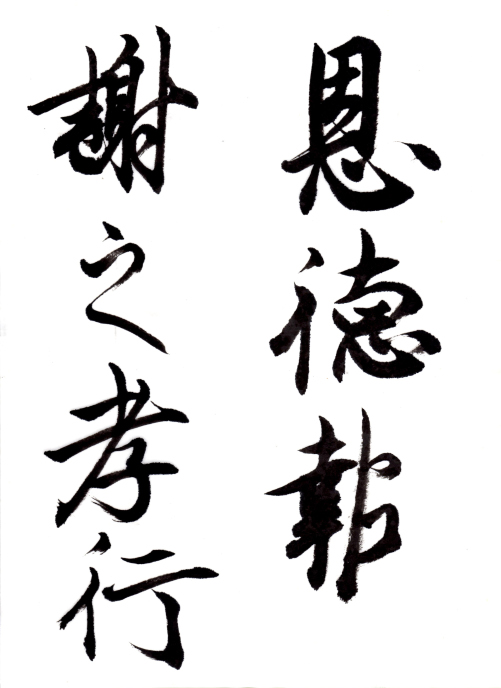 恩徳報
謝之孝行